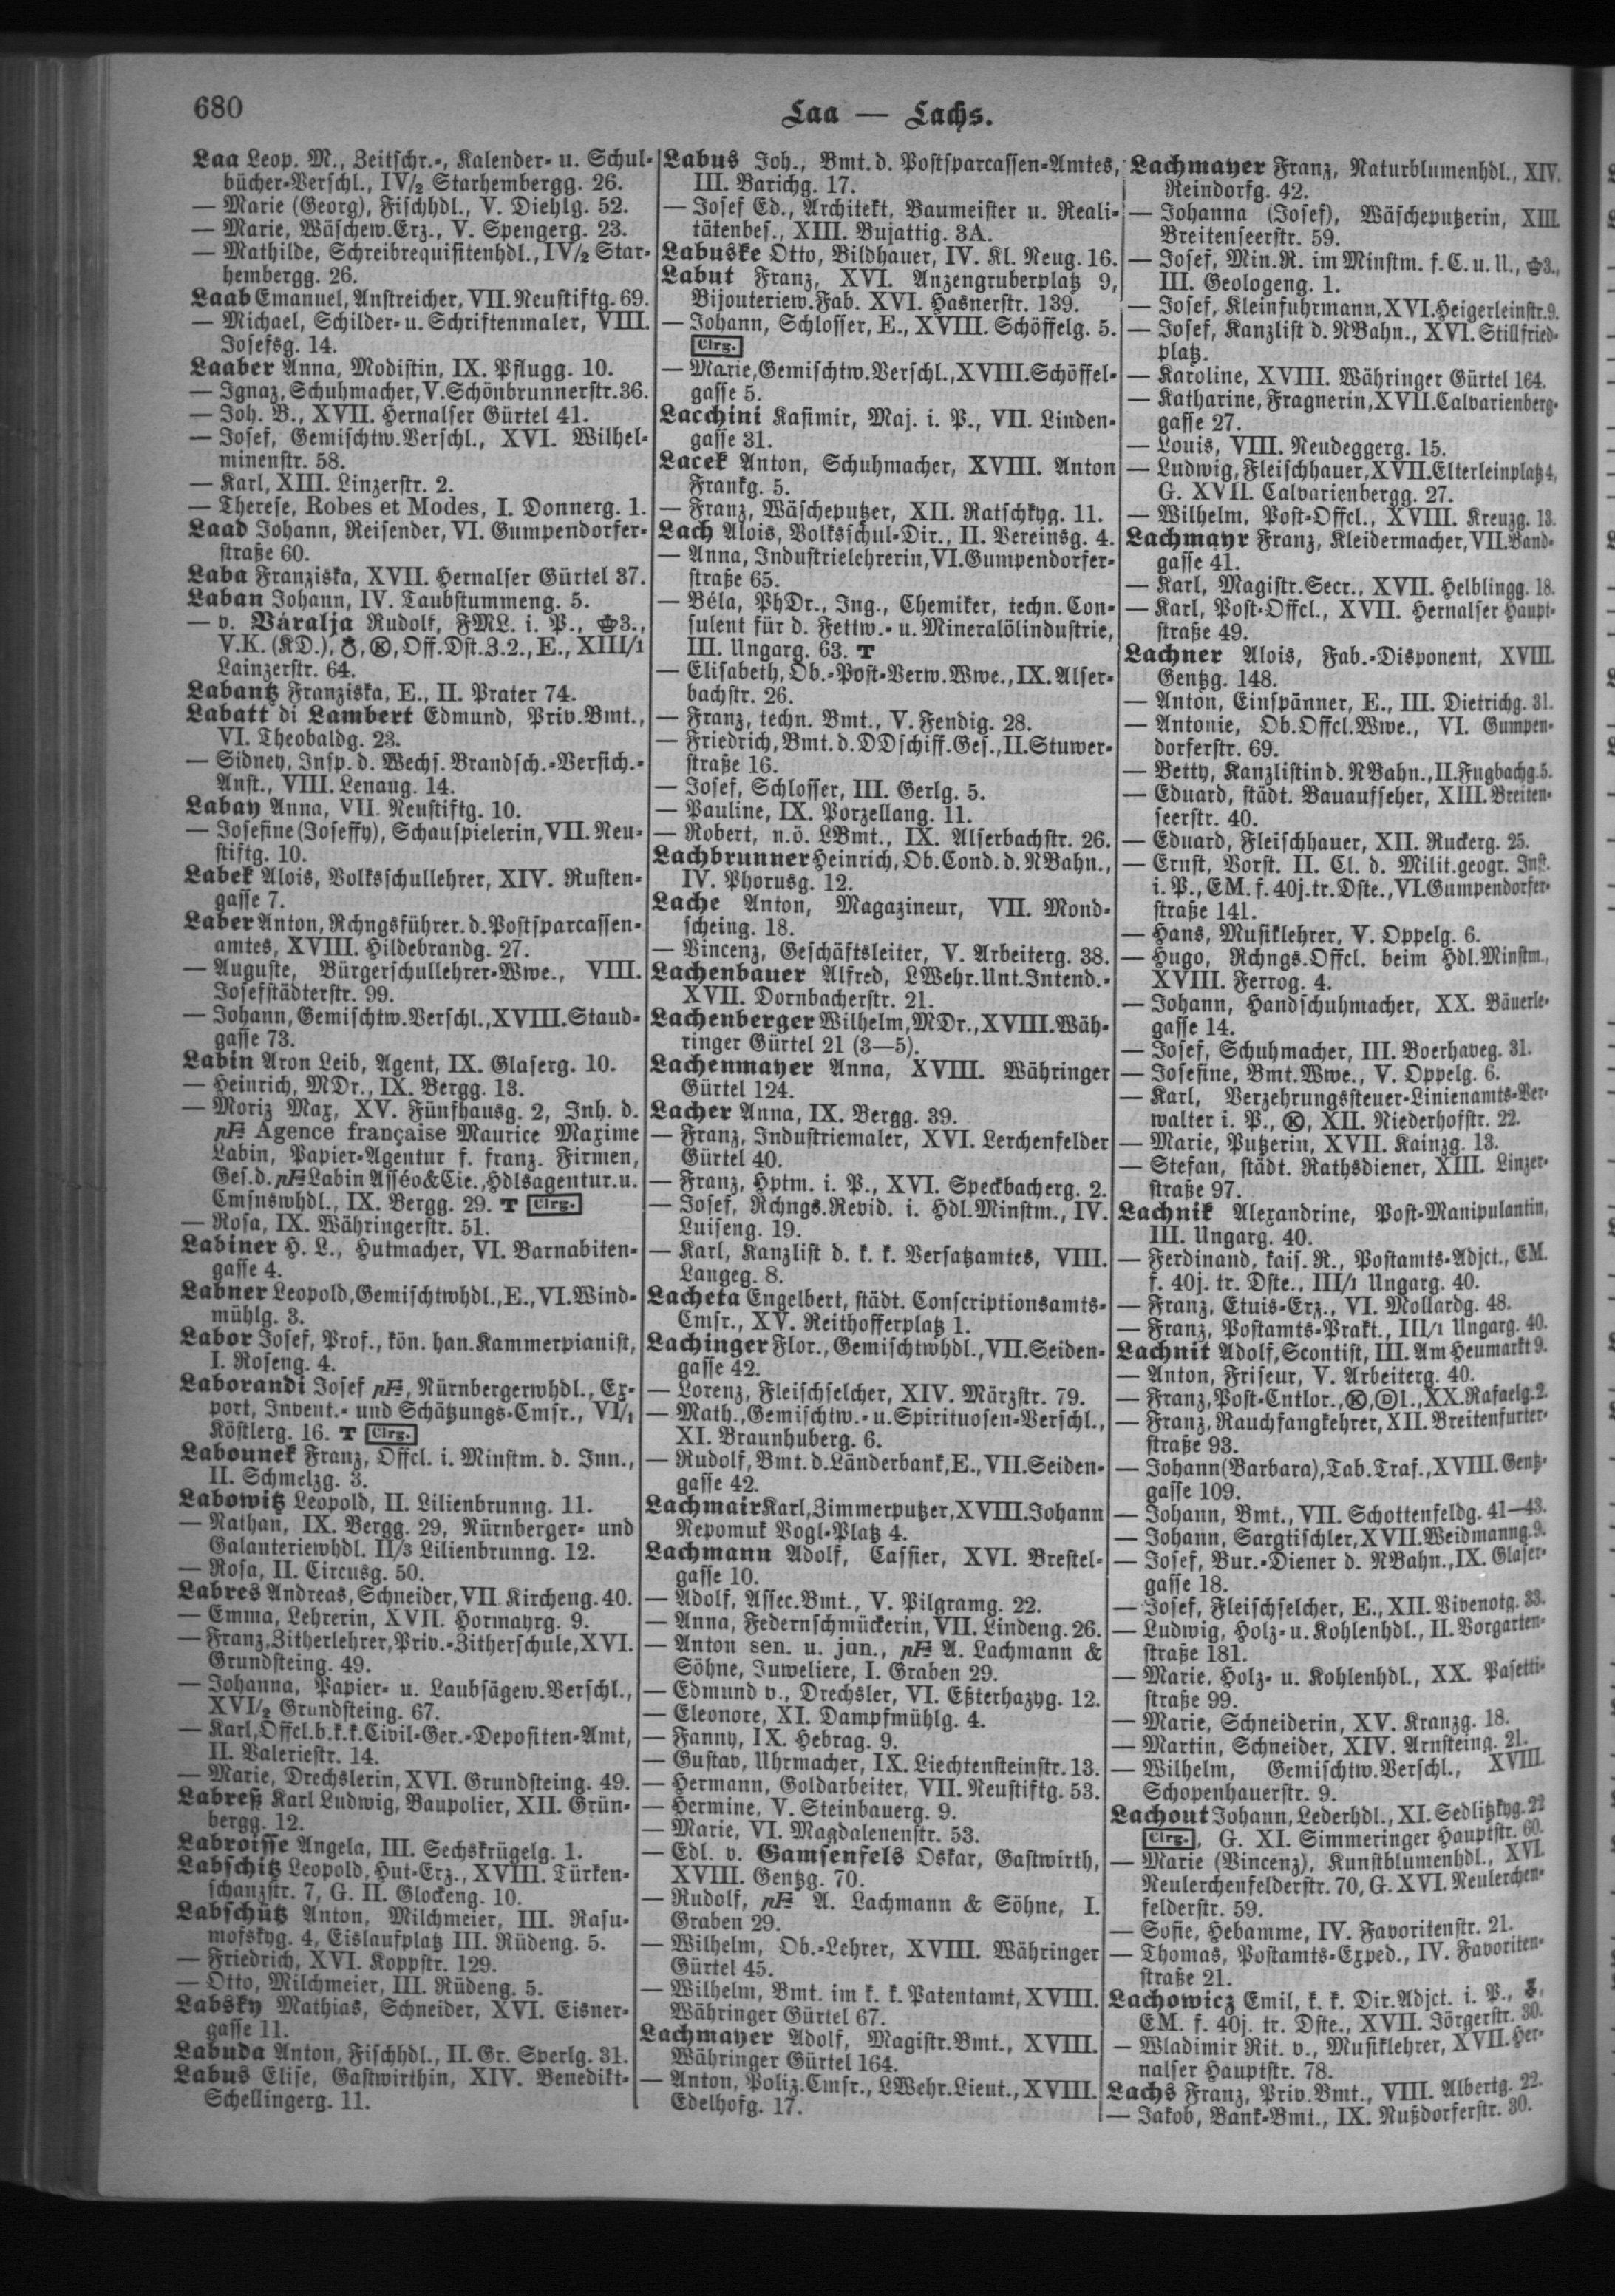 680
Laa — Lachs.
Laa Leop. M., Zeitschr.-, Kalender- u. Schul-
bücher-Verschl., IV/2 Starhembergg. 26.
— Marie (Georg), Fischhdl., V. Diehlg. 52.
— Marie, Wäschew.Erz., V. Spengerg. 23.
— Mathilde, Schreibrequisitenhdl., IV/2 Star-
hembergg. 26.
Laab Emanuel, Anstreicher, VII. Neustiftg. 69.
— Michael, Schilder- u. Schriftenmaler, VIII.
Josefsg. 14.
Laaber Anna, Modistin, IX. Pflugg. 10.
— Ignaz, Schuhmacher, V. Schönbrunnerstr. 36.
— Joh. B., XVII. Hernalser Gürtel 41.
— Josef, Gemischtw.Verschl., XVI. Wilhel-
minenstr. 58.
— Karl, XIII. Linzerstr. 2.
— Therese, Robes et Modes, I. Donnerg. 1.
Laad Johann, Reisender, VI. Gumpendorfer-
straße 60.
Laba Franziska, XVII. Hernalser Gürtel 37.
Laban Johann, IV. Taubstummeng. 5.
— v. Váralja Rudolf, FML. i. P., 3.,
V.K. (KD.), , Ⓚ, Off.Dst.Z.2., E., XIII/1
Lainzerstr. 64.
Labantz Franziska, E., II. Prater 74.
Labatt di Lambert Edmund, Priv.Bmt.,
VI. Theobaldg. 23.
— Sidney, Insp. d. Wechs. Brandsch.-Versich.-
Anst., VIII. Lenaug. 14.
Labay Anna, VII. Neustiftg. 10.
— Josefine (Joseffy), Schauspielerin, VII. Neu-
stiftg. 10.
Labek Alois, Volksschullehrer, XIV. Rusten-
gasse 7.
Laber Anton, Rchngsführer. d. Postsparcassen-
amtes, XVIII. Hildebrandg. 27.
— Auguste, Bürgerschullehrer-Wwe., VIII.
Josefstädterstr. 99.
— Johann, Gemischtw.Verschl., XVIII. Staud-
gasse 73.
Labin Aron Leib, Agent, IX. Glaserg. 10.
— Heinrich, MDr., IX. Bergg. 13.
— Moriz Max, XV. Fünfhausg. 2, Inh. d.
pFa Agence française Maurice Maxime
Labin, Papier-Agentur f. franz. Firmen,
Ges. d. pFa Labin Asséo & Cie., Hdlsagentur. u.
Cmsnswhdl., IX. Bergg. 29. T Clrg.
— Rosa, IX. Währingerstr. 51.
Labiner H. L., Hutmacher, VI. Barnabiten-
gasse 4.
Labner Leopold, Gemischtwhdl., E., VI. Wind-
mühlg. 3.
Labor Josef, Prof., kön. han. Kammerpianist,
I. Roseng. 4.
Laborandi Josef pFa, Nürnbergerwhdl., Ex-
port, Invent.- und Schätzungs-Cmsr., VI/1
Köstlerg. 16. T Clrg.
Labounek Franz, Offcl. i. Minstm. d. Inn.,
II. Schmelzg. 3.
Labowitz Leopold, II. Lilienbrunng. 11.
— Nathan, IX. Bergg. 29, Nürnberger- und
Galanteriewhdl. II/3 Lilienbrunng. 12.
— Rosa, II. Circusg. 50.
Labres Andreas, Schneider, VII. Kircheng. 40.
— Emma, Lehrerin, XVII. Hormayrg. 9.
— Franz, Zitherlehrer, Priv.-Zitherschule, XVI.
Grundsteing. 49.
— Johanna, Papier- u. Laubsägew.Verschl.,
XVI/2 Grundsteing. 67.
— Karl, Offcl. b. k. k. Civil-Ger.-Depositen-Amt,
II. Valeriestr. 14.
— Marie, Drechslerin, XVI. Grundsteing. 49.
Labreß Karl Ludwig, Baupolier, XII. Grün-
bergg. 12.
Labroisse Angela, III. Sechskrügelg. 1.
Labschitz Leopold, Hut-Erz., XVIII. Türken-
schanzstr. 7, G. II. Glockeng. 10.
Labschütz Anton, Milchmeier, III. Rasu-
mofskyg. 4, Eislaufplatz III. Rüdeng. 5.
— Friedrich, XVI. Koppstr. 129.
— Otto, Milchmeier, III. Rüdeng. 5.
Labsky Mathias, Schneider, XVI. Eisner-
gasse 11.
Labuda Anton, Fischhdl., II. Gr. Sperlg. 31.
Labus Elise, Gastwirthin, XIV. Benedikt-
Schellingerg. 11.
Labus Joh., Bmt. d. Postsparcassen-Amtes,
III. Barichg. 17.
— Josef Ed., Architekt, Baumeister u. Reali-
tätenbes., XIII. Bujattig. 3A.
Labuske Otto, Bildhauer, IV. Kl. Neug. 16.
Labut Franz, XVI. Anzengruberplatz 9,
Bijouteriew.Fab. XVI. Hasnerstr. 139.
— Johann, Schlosser, E., XVIII. Schöffelg. 5.
Clrg.
— Marie, Gemischtw.Verschl., XVIII. Schöffel-
gasse 5.
Lacchini Kasimir, Maj. i. P., VII. Linden-
gasse 31.
Lacek Anton, Schuhmacher, XVIII. Anton
Frankg. 5.
— Franz, Wäscheputzer, XII. Ratschkyg. 11.
Lach Alois, Volksschul-Dir., II. Vereinsg. 4.
— Anna, Industrielehrerin, VI. Gumpendorfer-
straße 65.
— Béla, PhDr., Ing., Chemiker, techn. Con-
sulent für d. Fettw.- u. Mineralölindustrie,
III. Ungarg. 63. T
— Elisabeth, Ob.-Post-Verw.Wwe., IX. Alser-
bachstr. 26.
— Franz, techn. Bmt., V. Fendig. 28.
— Friedrich, Bmt. d. DDschiff.Ges., II. Stuwer-
straße 16.
— Josef, Schlosser, III. Gerlg. 5.
— Pauline, IX. Porzellang. 11.
— Robert, n.ö. LBmt., IX. Alserbachstr. 26.
Lachbrunner Heinrich, Ob. Cond. d. NBahn.,
IV. Phorusg. 12.
Lache Anton, Magazineur, VII. Mond-
scheing. 18.
— Vincenz, Geschäftsleiter, V. Arbeiterg. 38.
Lachenbauer Alfred, LWehr.Unt.Intend.-
XVII. Dornbacherstr. 21.
Lachenberger Wilhelm, MDr., XVIII. Wäh-
ringer Gürtel 21 (3—5).
Lachenmayer Anna, XVIII. Währinger
Gürtel 124.
Lacher Anna, IX. Bergg. 39.
— Franz, Industriemaler, XVI. Lerchenfelder
Gürtel 40.
— Franz, Hptm. i. P., XVI. Speckbacherg. 2.
— Josef, Rchngs.Revid. i. Hdl.Minstm., IV.
Luiseng. 19.
— Karl, Kanzlist d. k. k. Versatzamtes, VIII.
Langeg. 8.
Lacheta Engelbert, städt. Conscriptionsamts-
Cmsr., XV. Reithofferplatz 1.
Lachinger Flor., Gemischtwhdl., VII. Seiden-
gasse 42.
— Lorenz, Fleischselcher, XIV. Märzstr. 79.
— Math., Gemischtw.- u. Spirituosen-Verschl.,
XI. Braunhuberg. 6.
— Rudolf, Bmt. d. Länderbank, E., VII. Seiden-
gasse 42.
Lachmair Karl, Zimmerputzer, XVIII. Johann
Nepomuk Vogl-Platz 4.
Lachmann Adolf, Cassier, XVI. Brestel-
gasse 10.
— Adolf, Assec.Bmt., V. Pilgramg. 22.
— Anna, Federnschmückerin, VII. Lindeng. 26.
— Anton sen. u. jun., pFa A. Lachmann &
Söhne, Juweliere, I. Graben 29.
— Edmund v., Drechsler, VI. Eßterhazyg. 12.
— Eleonore, XI. Dampfmühlg. 4.
— Fanny, IX. Hebrag. 9.
— Gustav, Uhrmacher, IX. Liechtensteinstr. 13.
— Hermann, Goldarbeiter, VII. Neustiftg. 53.
— Hermine, V. Steinbauerg. 9.
— Marie, VI. Magdalenenstr. 53.
— Edl. v. Gamsenfels Oskar, Gastwirth,
XVIII. Gentzg. 70.
— Rudolf, pFa A. Lachmann & Söhne, I.
Graben 29.
— Wilhelm, Ob.-Lehrer, XVIII. Währinger
Gürtel 45.
— Wilhelm, Bmt. im k. k. Patentamt, XVIII.
Währinger Gürtel 67.
Lachmayer Adolf, Magistr.Bmt., XVIII.
Währinger Gürtel 164.
— Anton, Poliz.Cmsr., LWehr.Lieut., XVIII.
Edelhofg. 17.
Lachmayer Franz, Naturblumenhdl., XIV.
Reindorfg. 42.
— Johanna (Josef), Wäscheputzerin, XIII.
Breitenseerstr. 59.
— Josef, Min.R. im Minstm. f. C. u. U., 3.,
III. Geologeng. 1.
— Josef, Kleinfuhrmann, XVI. Heigerleinstr. 9.
— Josef, Kanzlist d. NBahn., XVI. Stillfried-
platz.
— Karoline, XVIII. Währinger Gürtel 164.
— Katharine, Fragnerin, XVII. Calvarienberg-
gasse 27.
— Louis, VIII. Neudeggerg. 15.
— Ludwig, Fleischhauer, XVII. Elterleinplatz 4,
G. XVII. Calvarienbergg. 27.
— Wilhelm, Post-Offcl., XVIII. Kreuzg. 13.
Lachmayr Franz, Kleidermacher, VII. Band-
gasse 41.
— Karl, Magistr.Secr., XVII. Helblingg. 18.
— Karl, Post-Offcl., XVII. Hernalser Haupt-
straße 49.
Lachner Alois, Fab.-Disponent, XVIII.
Gentzg. 148.
— Anton, Einspänner, E., III. Dietrichg. 31.
— Antonie, Ob.Offcl.Wwe., VI. Gumpen-
dorferstr. 69.
— Betty, Kanzlistin d. NBahn., II. Fugbachg. 5.
— Eduard, städt. Bauaufseher, XIII. Breiten-
seerstr. 40.
— Eduard, Fleischhauer, XII. Ruckerg. 25.
— Ernst, Vorst. II. Cl. d. Milit.geogr. Inst.
i. P., EM. f. 40j. tr. Dste., VI. Gumpendorfer-
straße 141.
— Hans, Musiklehrer, V. Oppelg. 6.
— Hugo, Rchngs.Offcl. beim Hdl.Minstm.,
XVIII. Ferrog. 4.
— Johann, Handschuhmacher, XX. Bäuerle-
gasse 14.
— Josef, Schuhmacher, III. Boerhaveg. 31.
— Josefine, Bmt.Wwe., V. Oppelg. 6.
— Karl, Verzehrungssteuer-Linienamts-Ver-
walter i. P., Ⓚ, XII. Niederhofstr. 22.
— Marie, Putzerin, XVII. Kainzg. 13.
— Stefan, städt. Rathsdiener, XIII. Linzer-
straße 97.
Lachnik Alexandrine, Post-Manipulantin,
III. Ungarg. 40.
— Ferdinand, kais. R., Postamts-Adjct., EM.
f. 40j. tr. Dste., III/1 Ungarg. 40.
— Franz, Etuis-Erz., VI. Mollardg. 48.
— Franz, Postamts-Prakt., III/1 Ungarg. 40.
Lachnit Adolf, Scontist, III. Am Heumarkt 9.
— Anton, Friseur, V. Arbeiterg. 40.
— Franz, Post-Cntlor., Ⓚ, Ⓓ1., XX. Rafaelg. 2.
— Franz, Rauchfangkehrer, XII. Breitenfurter-
straße 93.
— Johann (Barbara), Tab.Traf., XVIII. Gentz-
gasse 109.
— Johann, Bmt., VII. Schottenfeldg. 41—43.
— Johann, Sargtischler, XVII. Weidmanng. 9.
— Josef, Bur.-Diener d. NBahn., IX. Glaser-
gasse 18.
— Josef, Fleischselcher, E., XII. Vivenotg. 33.
— Ludwig, Holz- u. Kohlenhdl., II. Vorgarten-
straße 181.
— Marie, Holz- u. Kohlenhdl., XX. Pasetti-
straße 99.
— Marie, Schneiderin, XV. Kranzg. 18.
— Martin, Schneider, XIV. Arnsteing. 21.
— Wilhelm, Gemischtw.Verschl., XVIII.
Schopenhauerstr. 9.
Lachout Johann, Lederhdl., XI. Sedlitzkyg. 22
Clrg., G. XI. Simmeringer Hauptstr. 60.
— Marie (Vincenz), Kunstblumenhdl., XVI.
Neulerchenfelderstr. 70, G. XVI. Neulerchen-
felderstr. 59.
— Sofie, Hebamme, IV. Favoritenstr. 21.
— Thomas, Postamts-Exped., IV. Favoriten-
straße 21.
Lachowicz Emil, k. k. Dir.Adjct. i. P.,
EM. f. 40j. tr. Dste., XVII. Jörgerstr. 30.
— Wladimir Rit. v., Musiklehrer, XVII. Her-
nalser Hauptstr. 78.
Lachs Franz, Priv.Bmt., VIII. Albertg. 22.
— Jakob, Bank-Bmt., IX. Nußdorferstr. 30.